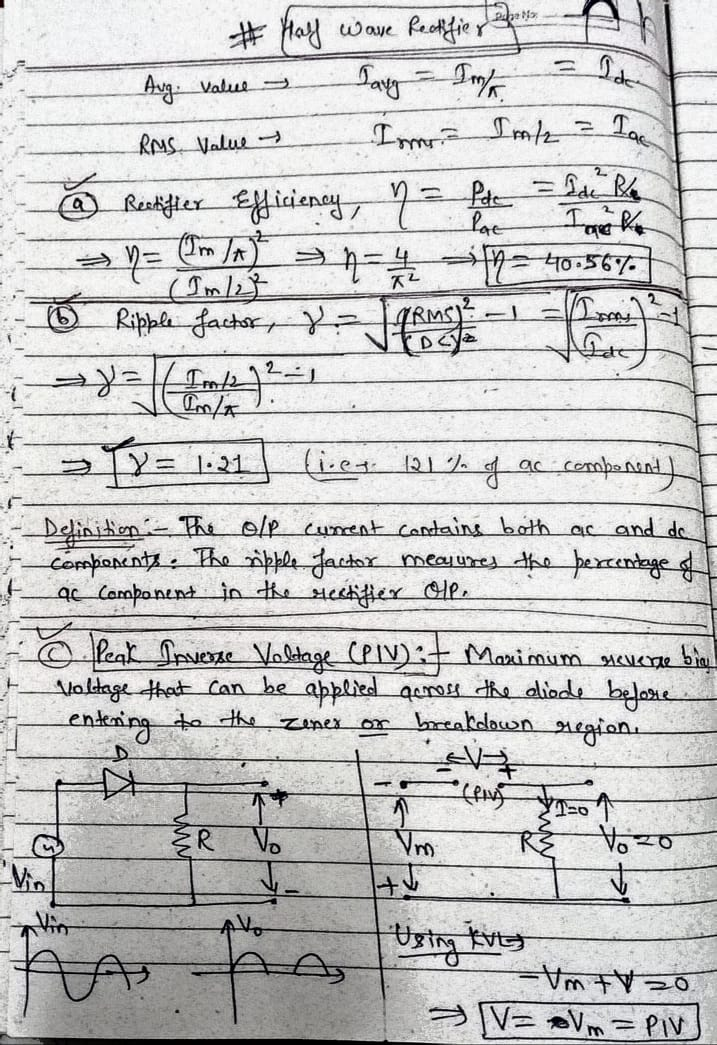 # Half Wave Rectifier
Avg. Value → Iavg = Im/π = Idc
RMS. Value → Irms = Im/2 = Iac
(a) Rectifier Efficiency, η = Pdc/Pac = Idc² R/Iac² R
⇒ η = (Im/π)²/(Im/2)² ⇒ η = 4/π² ⇒ η = 40.56%
(b) Ripple factor, γ = √((RMS)²/(DC)² - 1) = √((Irms/Idc)² - 1)
⇒ γ = √(((Im/2)/(Im/π))² - 1)
⇒ γ = 1.21 (i.e. 121% of ac component)
Definition:- The O/P current contains both ac and dc
components. The ripple factor measures the percentage of
ac component in the rectifier O/P.
(c) Peak Inverse Voltage (PIV):- Maximum reverse bias
voltage that can be applied across the diode before
entering to the zener or breakdown region.
D
←V→
- +
(PIV)
I=0
+
R Vo
-
Vin
-
Vm
+
R Vo=0
Vin
Vo
Using KVL→
-Vm + V = 0
⇒ V = Vm = PIV